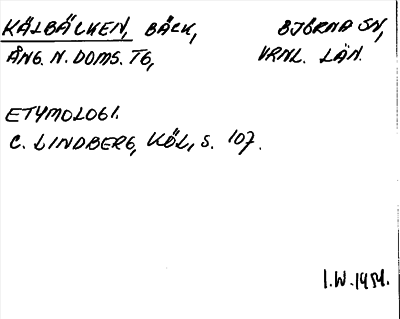 KÄLBÄCKEN, BÄCK, BJÖRNA SN,
ÅNG. N. DOMS. TG, VRNL. LÄN.
ETYMOLOGI.
C. LINDBERG, KÖL, S. 107.
I.W. 1954.